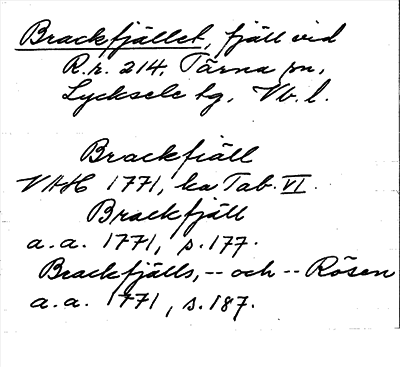 Brackfjället, fjäll vid
R.r. 214, Tärna sn,
Lycksele tg, Vb. l.
Brackfiäll
VAH 1771, ka Tab. VI.
Brackfjäll
a.a. 1771, s. 177.
Brackfjälls, -- och -- Rösen
a.a. 1771, s. 187.